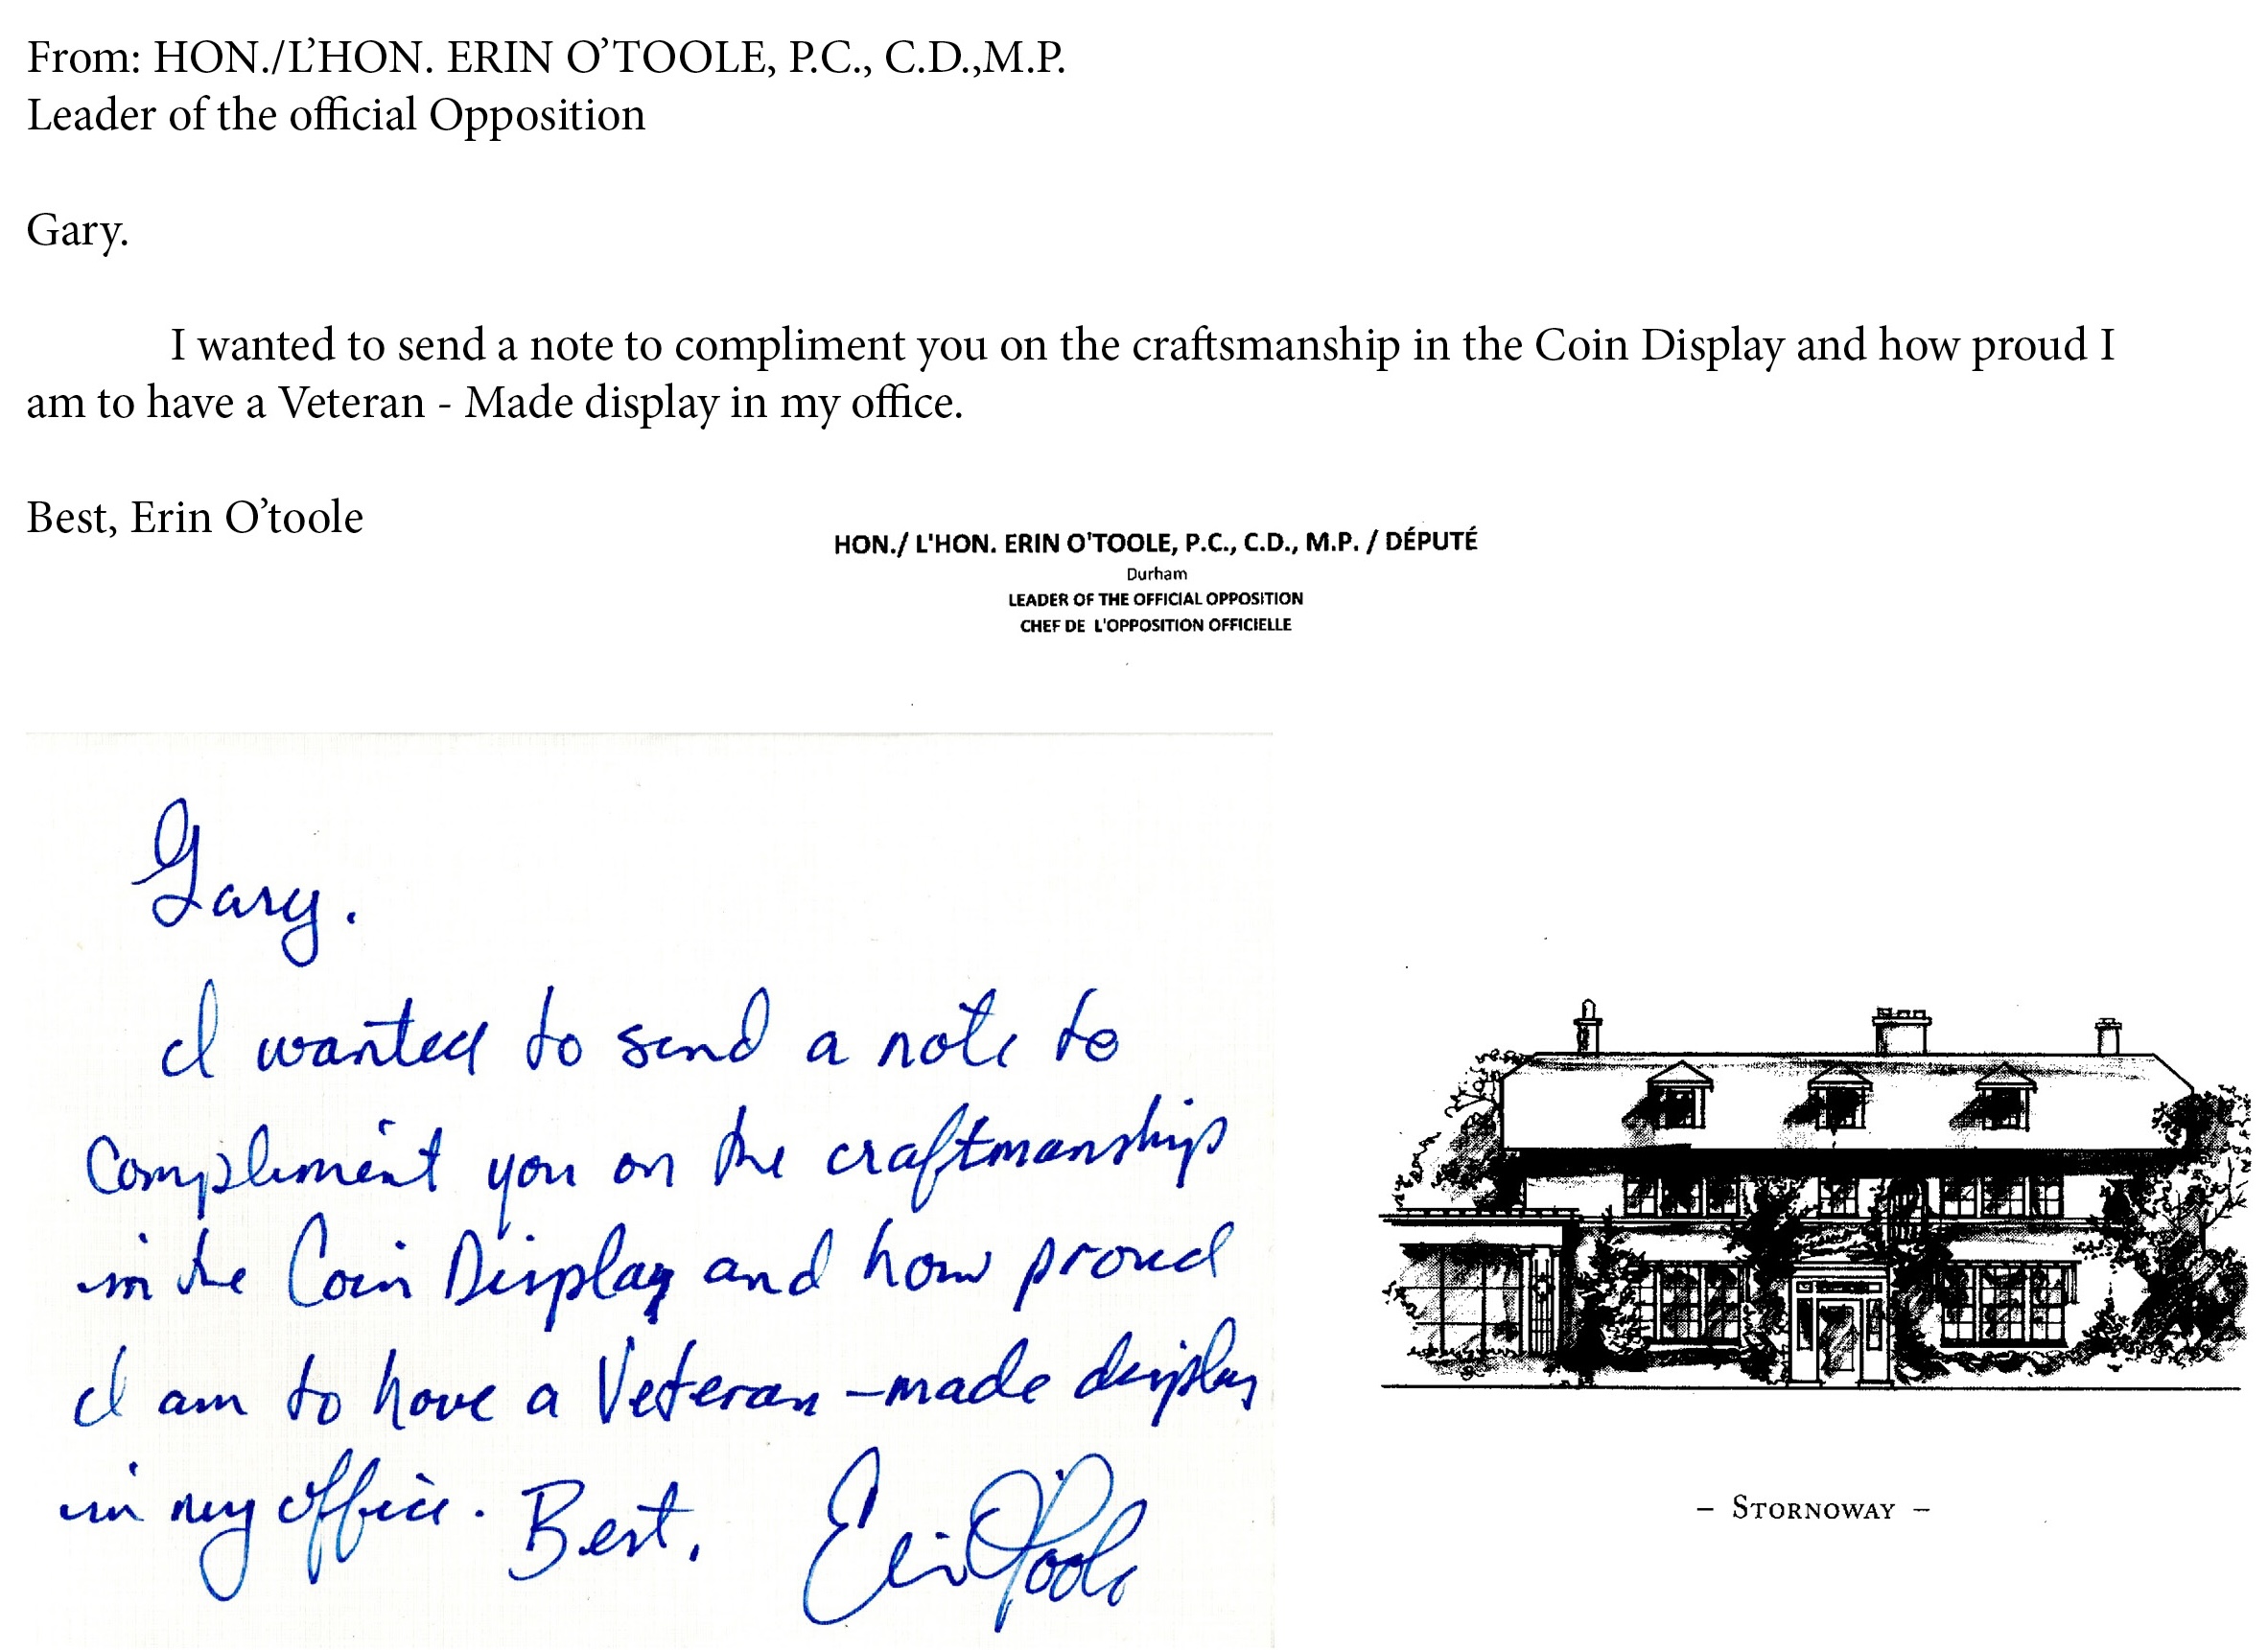 From: HON./L’HON. ERIN O’TOOLE, P.C., C.D.,M.P.
Leader of the official Opposition
Gary.
I wanted to send a note to compliment you on the craftsmanship in the Coin Display and how proud I
am to have a Veteran - Made display in my office.
Best, Erin O’toole
HON./ L'HON. ERIN O'TOOLE, P.C., C.D., M.P. / DÉPUTÉ
Durham
LEADER OF THE OFFICIAL OPPOSITION
CHEF DE L'OPPOSITION OFFICIELLE
Gary.
I wanted to send a note to
Compliment you on the craftmanship
in the Coin Display and how proud
I am to have a Veteran-made display
in my office. Best, Erin O'Toole
– STORNOWAY –